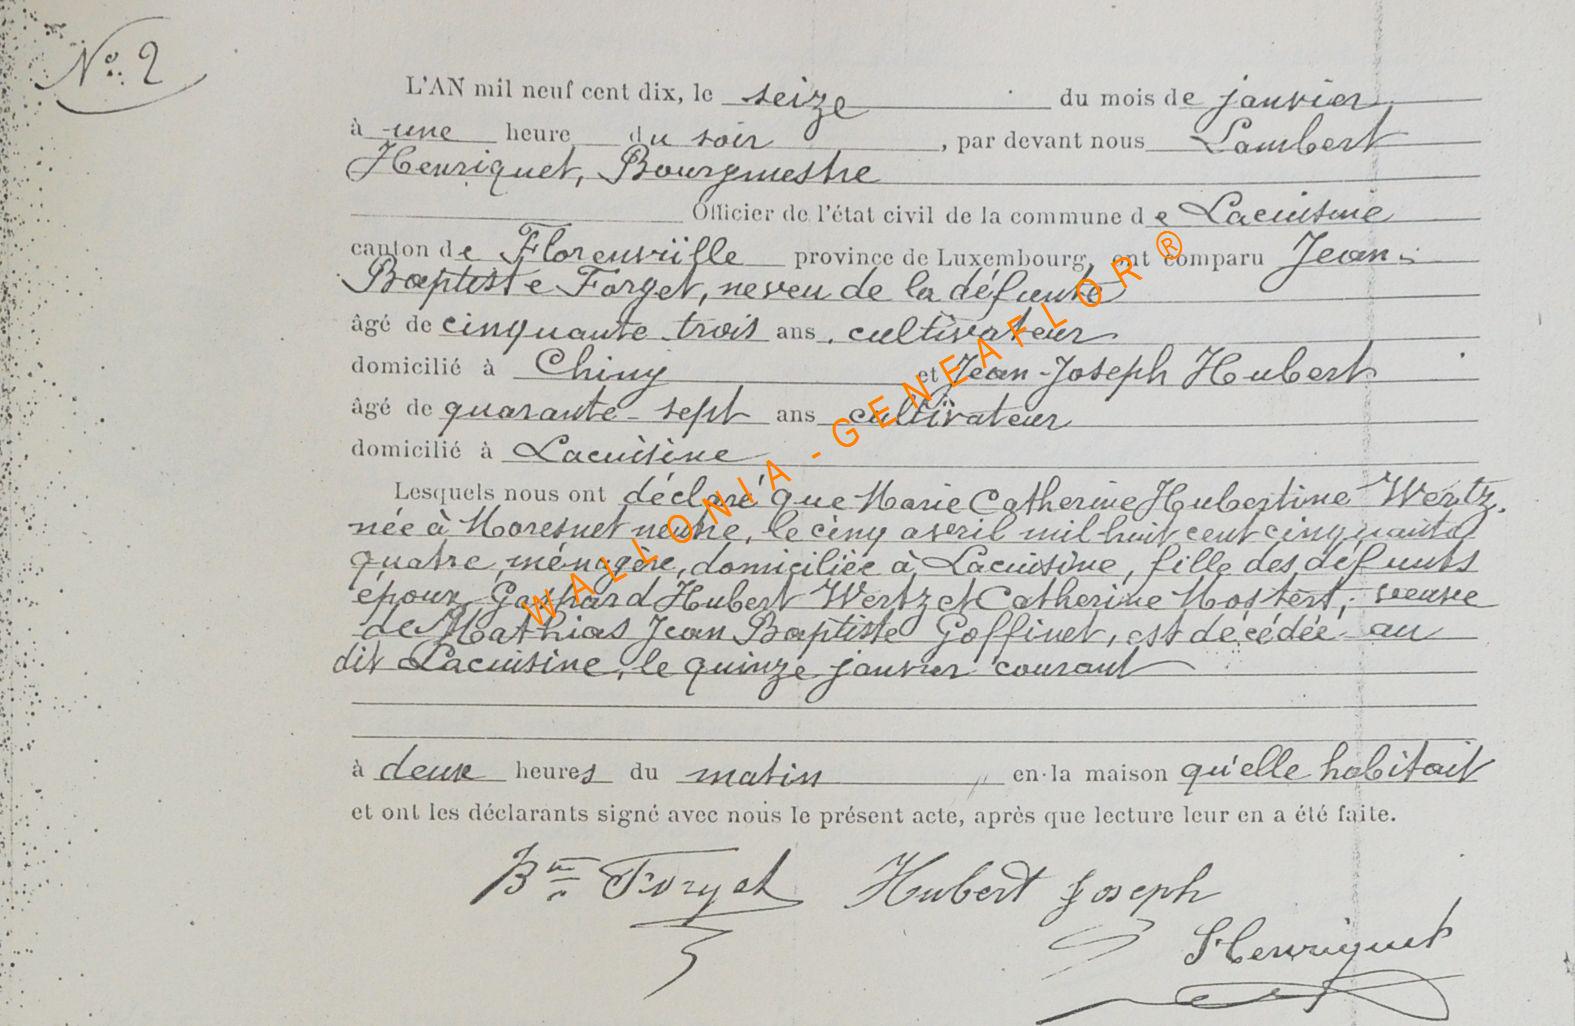 N° 2
L'AN mil neuf cent dix, le seize du mois de janvier
à une heure du soir, par devant nous Lambert
Henriquet, Bourgmestre
Officier de l'état civil de la commune de Lacuisine
canton de Florenville province de Luxembourg, ont comparu Jean-
Baptiste Forget, neveu de la défunte
âgé de cinquante trois ans, cultivateur
domicilié à Chiny et Jean-Joseph Hubert
âgé de quarante-sept ans cultivateur
domicilié à Lacuisine
Lesquels nous ont déclaré que Marie Catherine Hubertine Wertz,
née à Moresnet neutre, le cinq avril mil huit cent cinquante
quatre, ménagère, domiciliée à Lacuisine, fille des défunts
époux Gaspard Hubert Wertz et Catherine Mostert, veuve
de Mathias Jean Baptiste Goffinet, est décédée au
dit Lacuisine, le quinze janvier courant
à deux heures du matin en la maison qu'elle habitait
et ont les déclarants signé avec nous le présent acte, après que lecture leur en a été faite.
Bte Forget Hubert Joseph
Henriquet
WALLONIA - GENEAFLOR ®